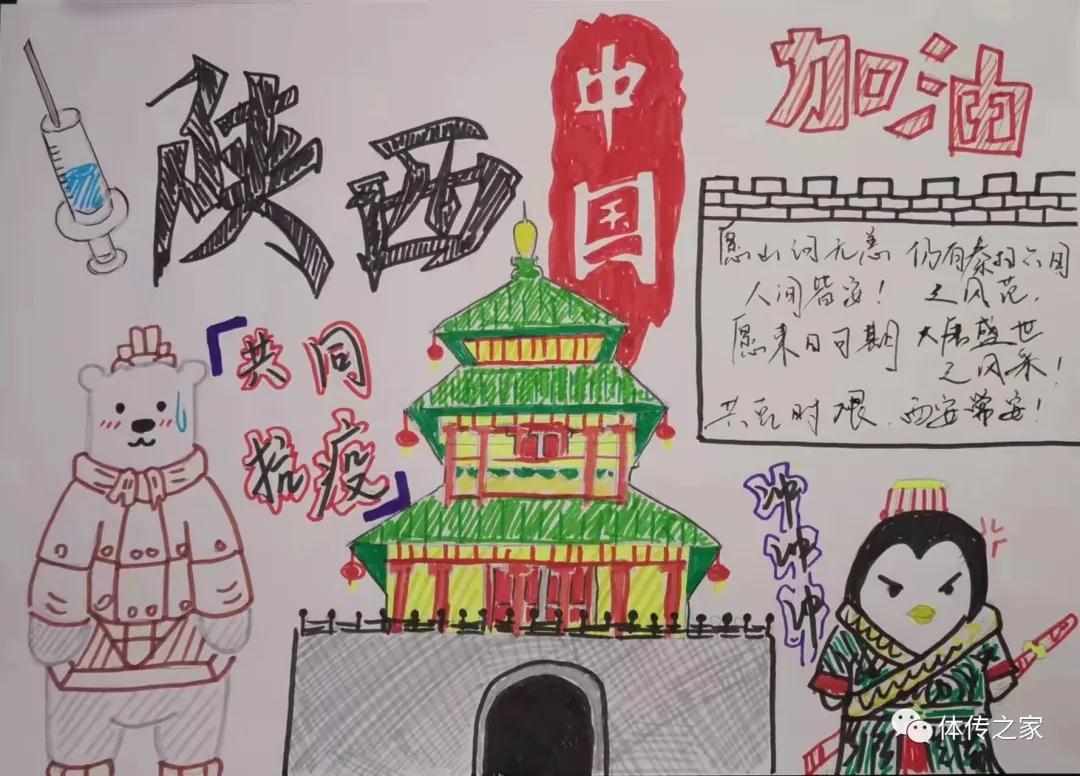 陕西
中国
加油
「共同
抗疫」
愿山河无恙 仍有秦扫六国
人间皆安! 之风范.
愿来日可期 大唐盛世
之风采!
共克时艰.西安常安!
冲冲冲
体传之家